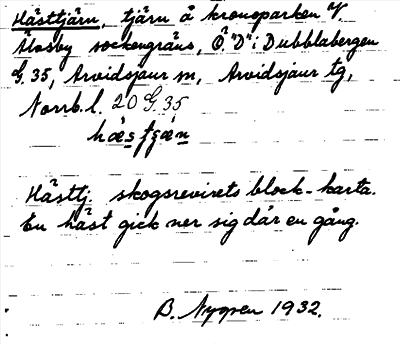 Hästtjärn, tjärn å kronoparken V.
Älvsby sockengräns, Ö. "D" i Dubblabergen
G. 35, Arvidsjaur sn, Arvidsjaur tg,
Norrb. l. 20 G. 35
Hästtj. skogsrevirets block-karta.
En häst gick ner sig där en gång.
B. Nygren 1932.